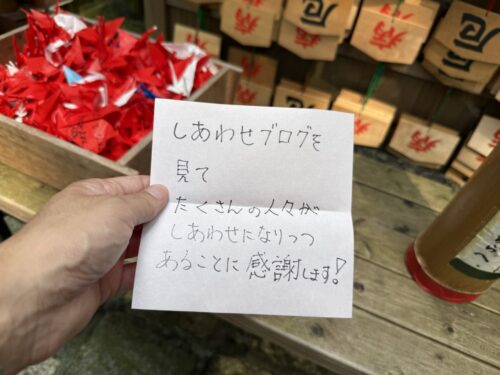 しあわせブログを
見て
たくさんの人々が
しあわせになりつつ
あることに感謝します!
病
厄
厄
病
厄
病
病